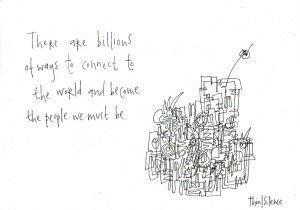 There are billions
of ways to connect to
the world and become
the people we must be